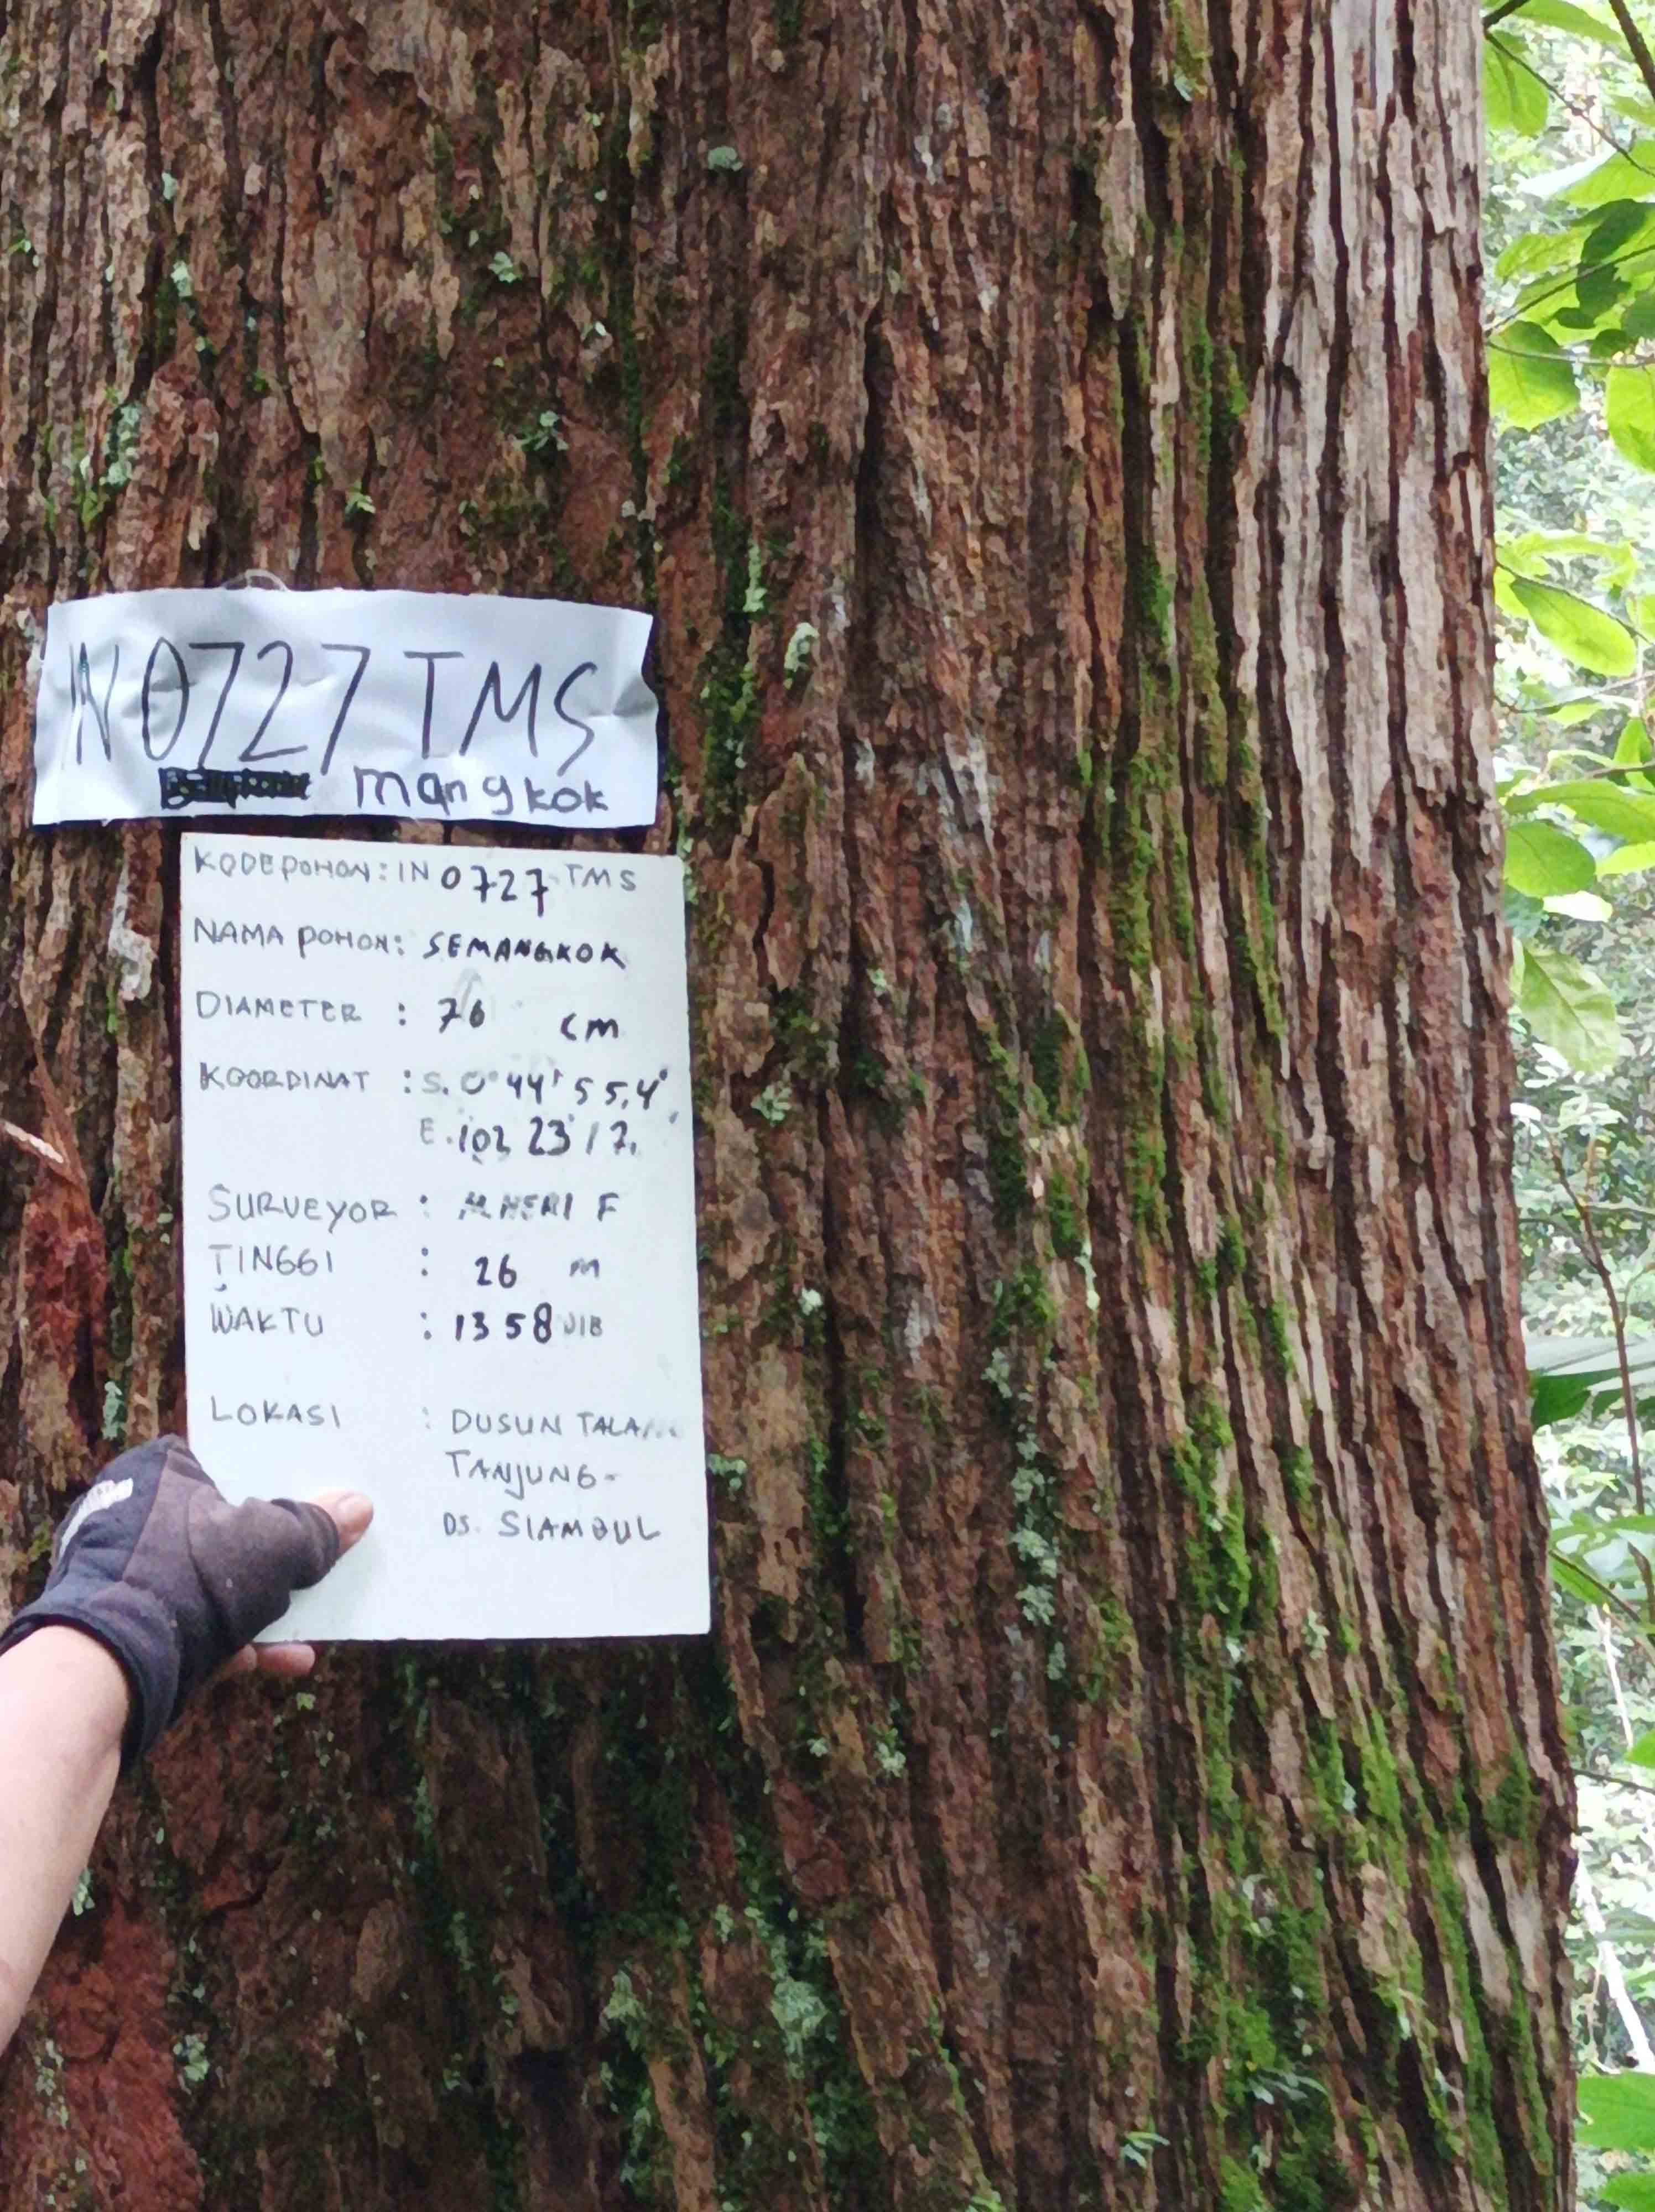 IN 0727 TMS
mangkok
KODE POHON: IN 0727 TMS
NAMA POHON: SEMANGKOK
DIAMETER : 76 CM
KOORDINAT : S. 0° 44' 55,4"
E. 102 23' 17,
SURVEYOR : F
TINGGI : 26 m
WAKTU : 13 58 WIB
LOKASI : DUSUN
TANJUNG-
DS. SIAMBUL